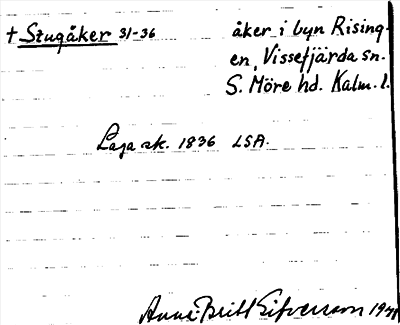 + Stugåker 31-36 åker i byn Rising-
en, Vissefjärda sn.
S. Möre hd. Kalm. l.
Laga sk. 1836 LSA.
Anna-Britt Sifversson